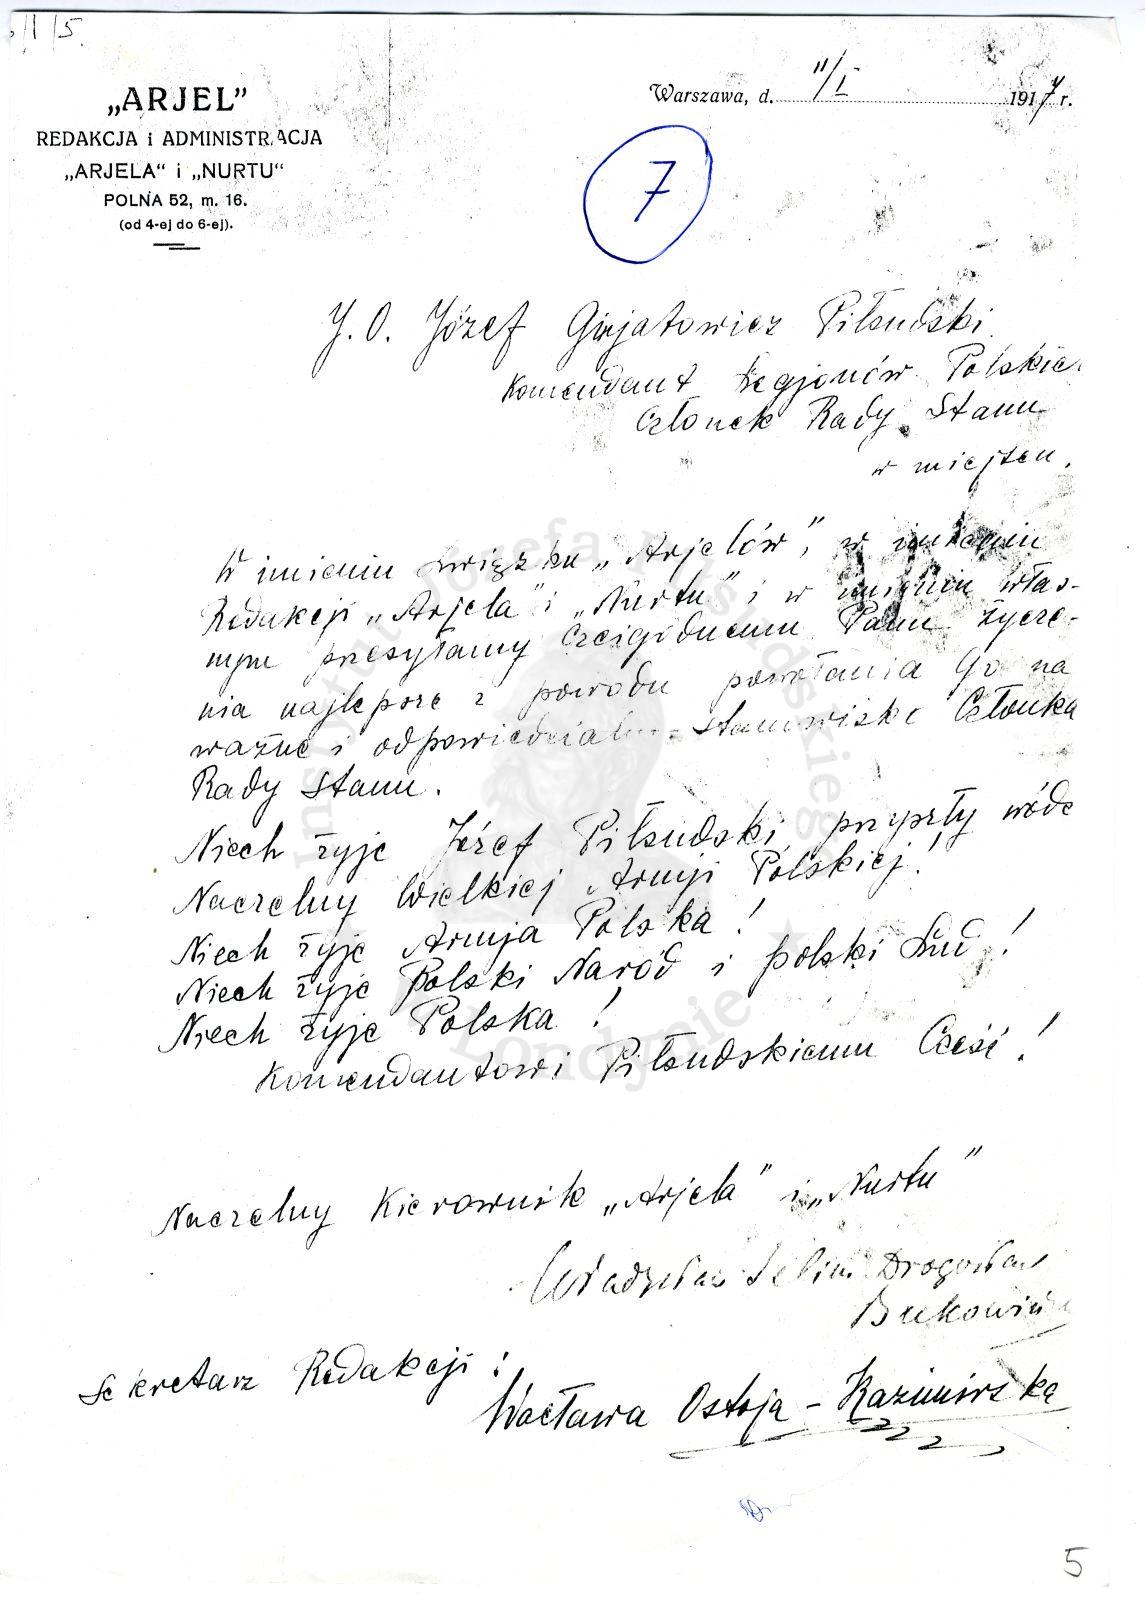 /I/5.
„ARJEL”
REDAKCJA i ADMINISTRACJA
„ARJELA“ i „NURTU“
POLNA 52, m. 16.
(od 4-ej do 6-ej).
Warszawa, d. 11/I 1917 r.
7
J. O. Józef Ginjatowicz Piłsudski
Komendant Legjonów Polskic
Członek Rady Stanu
w miejscu.
W imieniu związku „Arjelów”, w imieniu
Redakcji „Arjela” i „Nurtu” i w imieniu włas-
nym przesyłamy Czcigodnemu Panu życze-
nia najlepsze z powodu powołania Go na
ważne i odpowiedzialne stanowisko Członka
Rady Stanu.
Niech żyje Józef Piłsudski, przyszły wódz
Naczelny Wielkiej Armji Polskiej!
Niech żyje Armja Polska!
Niech żyje Polski Naród i polski Lud!
Niech żyje Polska!
Komendantowi Piłsudskiemu Cześć!
Naczelny Kierownik „Arjela” i „Nurtu”
Władysław Selim Drogosław
Bukowiń
Sekretarz Redakcji:
Wacława Ostoja-Kazimirska
5
Instytut Józefa Piłsudskiego
Londynie